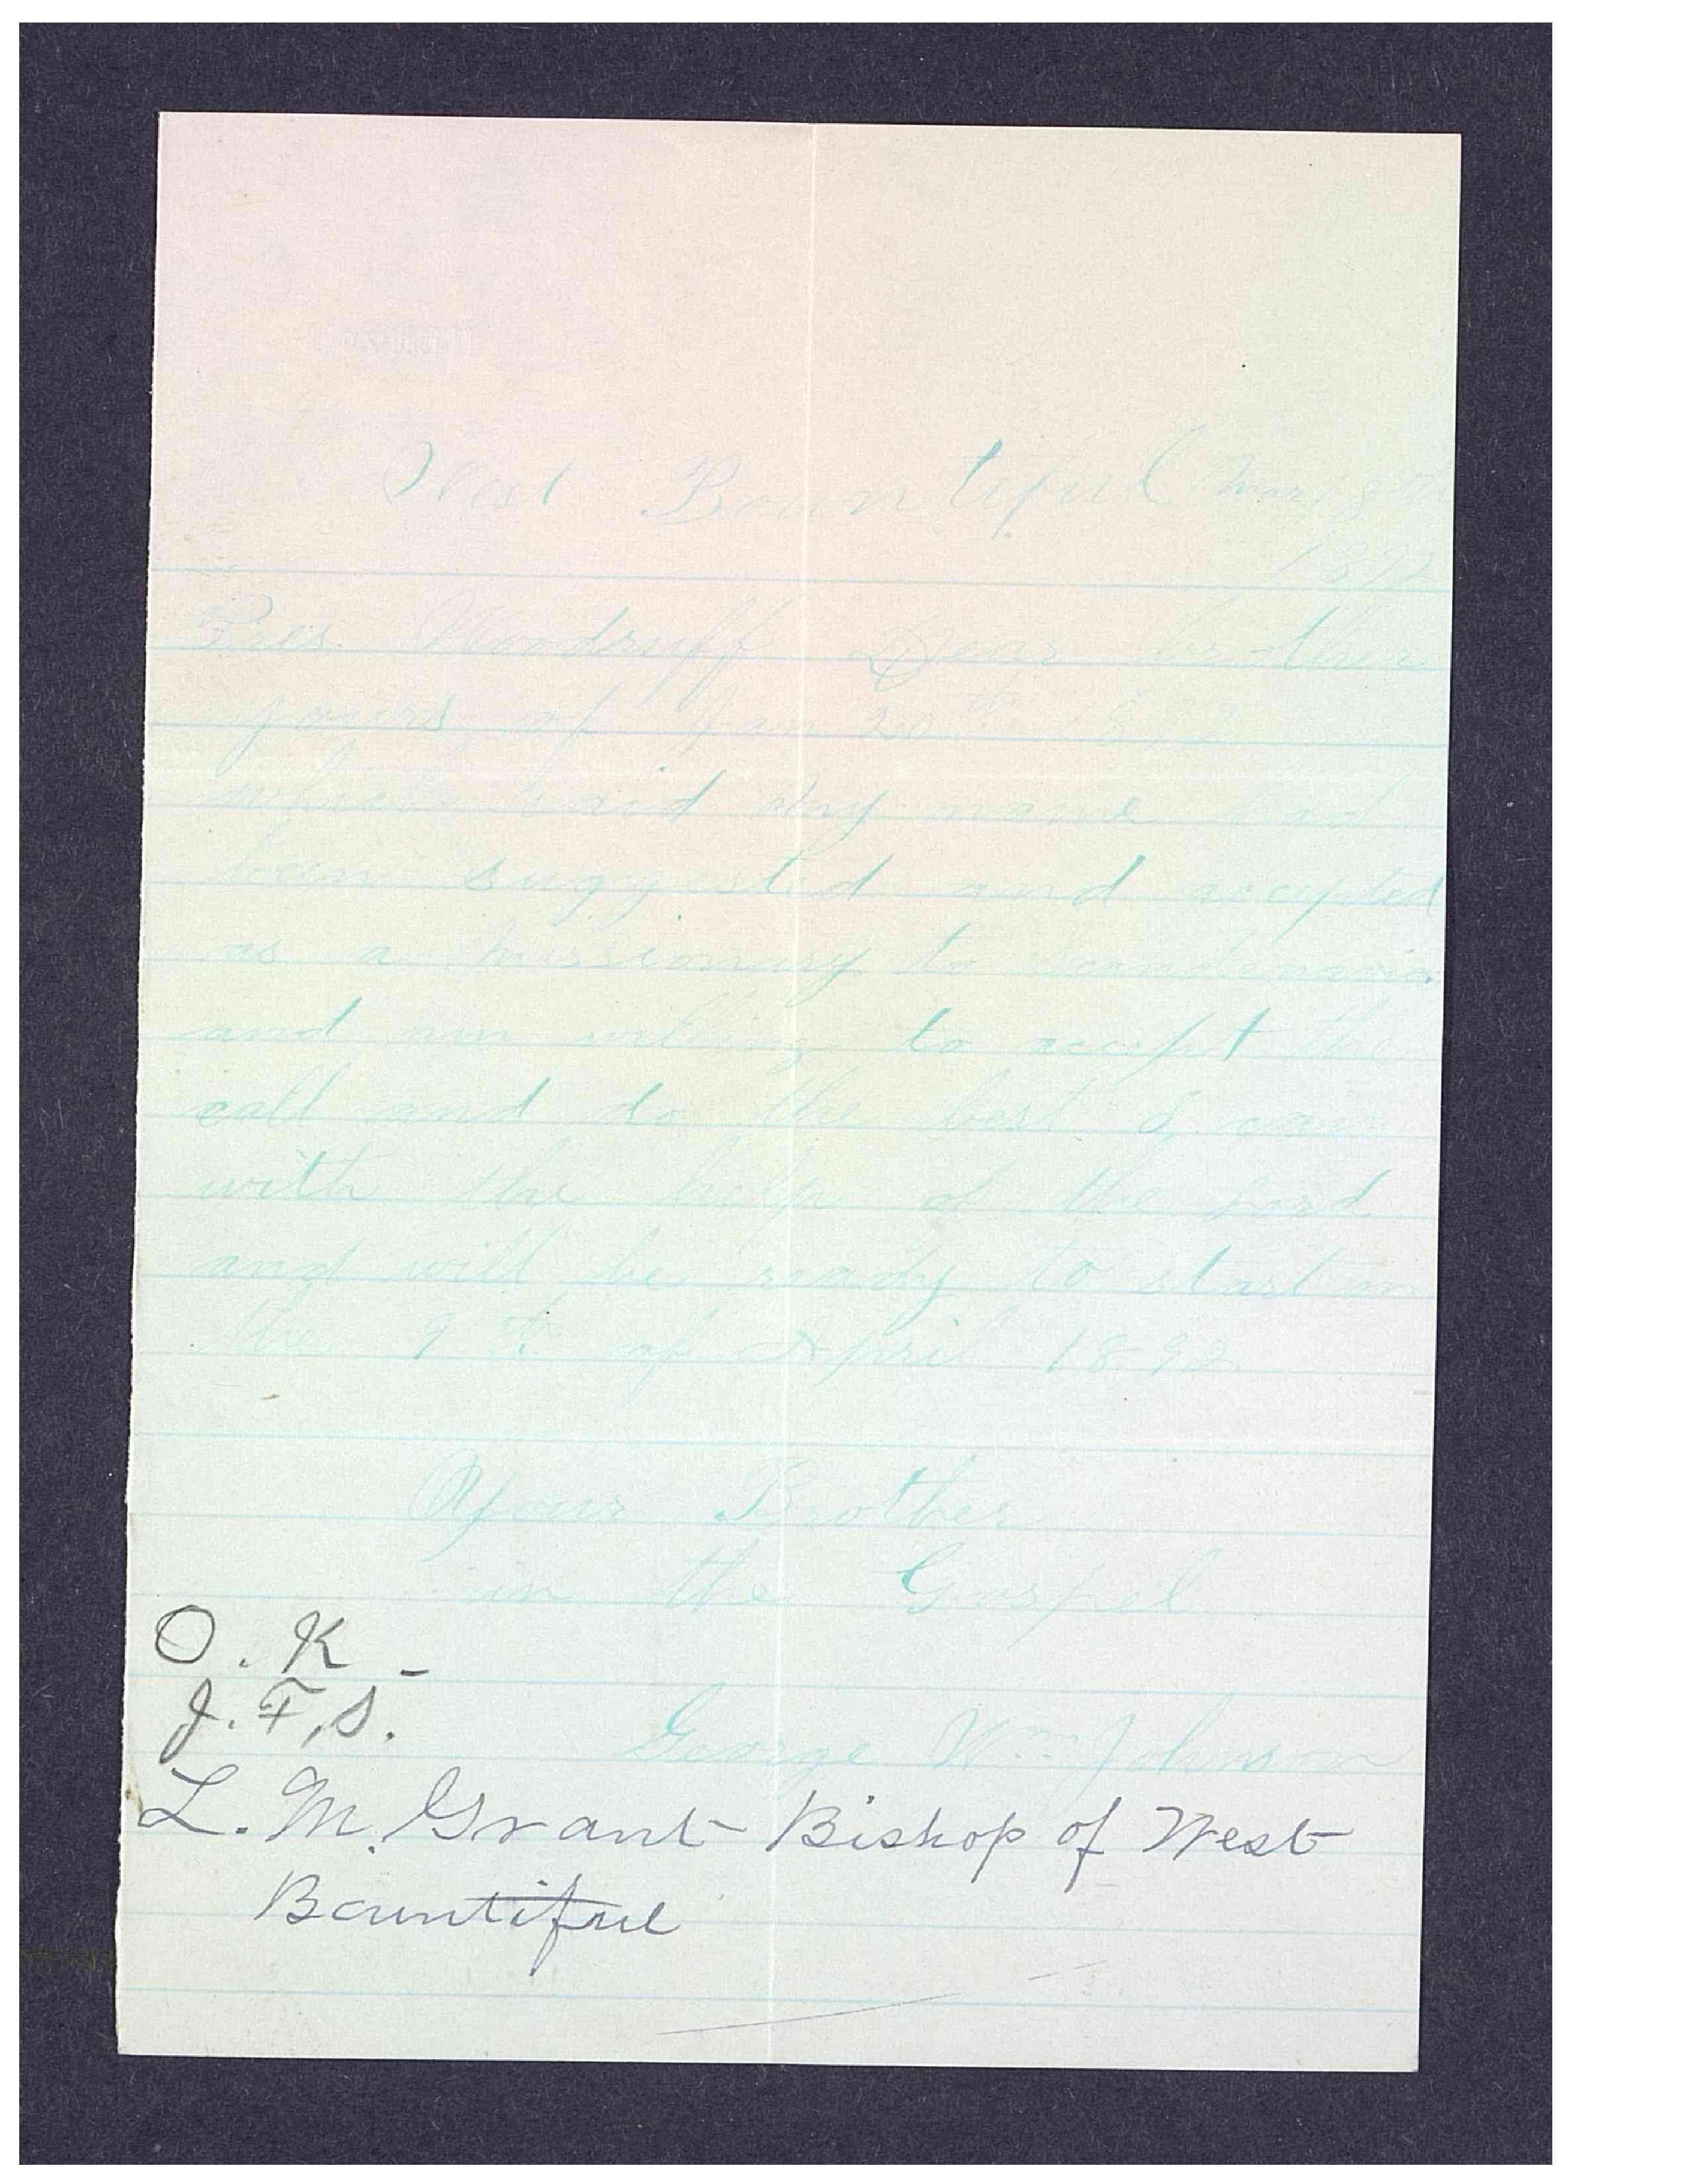 West Bountiful Mar 8th
1892
Pres. Woodruff Dear brother
yours of Jan 20th 1892
which said my name had
been suggested and accepted
as a missionary to Scandinavia
and am willing to accept the
call and do the best I can
with the help of the Lord
and will be ready to start on
the 9th of April 1892
Your Brother
in the Gospel
O. K -
J. F. S.
George Wm Johnson
L. M. Grant - Bishop of West
Bountiful